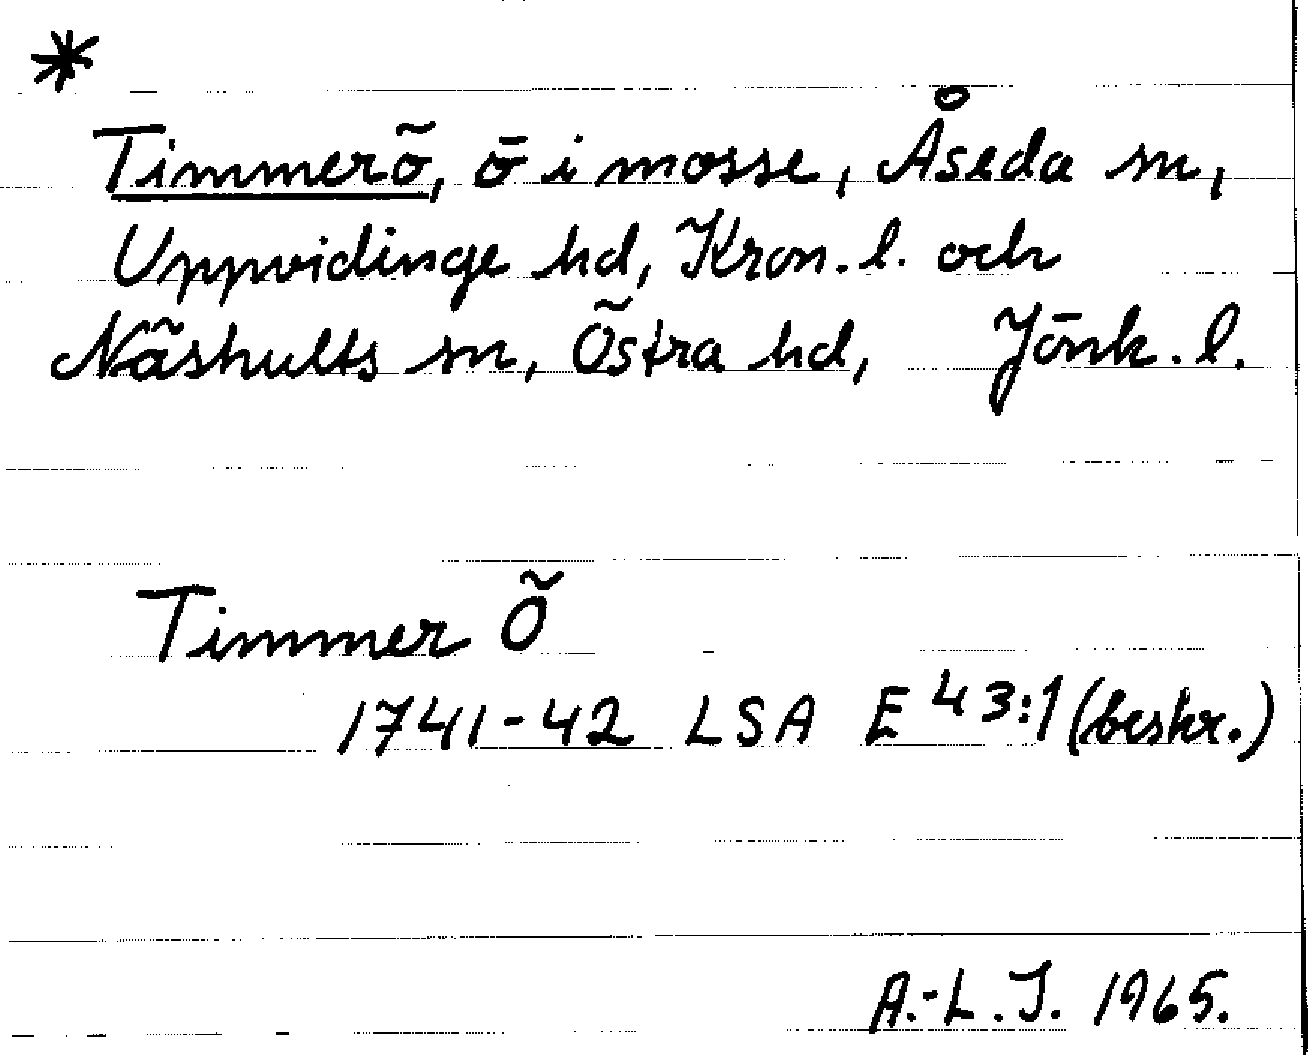 *
Timmerö, ö i mosse, Åseda sn,
Uppvidinge hd, Kron. l. och
Näshults sn, Östra hd, Jönk. l.
Timmer Ö
1741-42 LSA E 43:1 (beskr.)
A.-L. J. 1965.